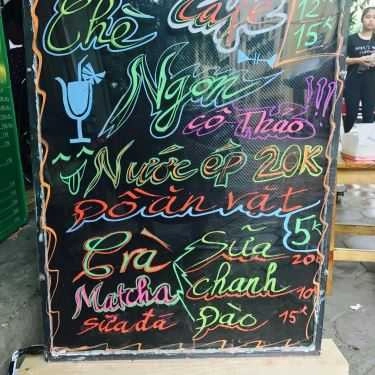 Chè Cafe 12K
15K
Ngon
cô Thảo !!!
Nước ép 20K
Đồ ăn vặt
5K
Trà Sữa 20K
Matcha chanh 10K
sữa đá Đào 15K